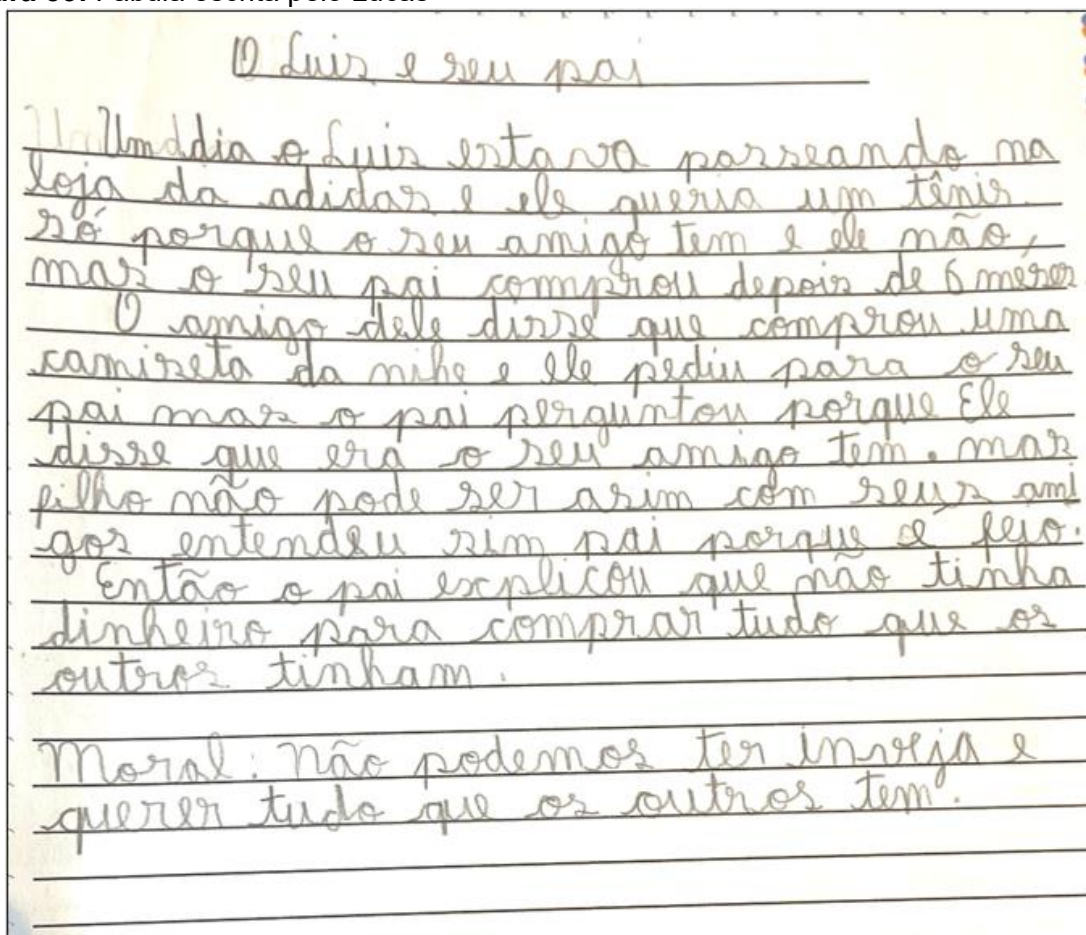 Fábula escrita pelo Lucas
O Luis e seu pai
Um dia o Luis estava passeando na
loja da adidas e ele queria um tênis
só porque o seu amigo tem e ele não,
mas o seu pai comprou depois de 6 mêses
O amigo dele disse que comprou uma
camiseta da nihe e ele pediu para o seu
pai mas o pai perguntou porque Ele
disse que era o seu amigo tem. mas
filho não pode ser asim com seus ami
gos entendeu sim pai porque é fejo.
Então o pai explicou que não tinha
dinheiro para comprar tudo que os
outros tinham.
Moral: Não podemos ter inveja e
querer tudo que os outros tem.